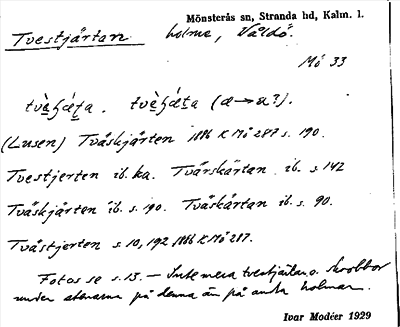 Mönsterås sn, Stranda hd, Kalm. l.
Tvestjärtan holme, Vållö.
Mö 33
(Lusen) Tväskjärten 1886 K Mö 287 s. 190.
Tvestjerten ib. ka. Tvärskärtan ib. s. 142
Tväskjärten ib. s. 190. Tväskärtan ib. s. 90.
Tvästjerten s. 10, 192 1886 K Mö 287.
Fotos se s. 13. — Inte mera tvestjärtar o. skrobbor
under stenarna på denna än på andra holmar.
Ivar Modéer 1929